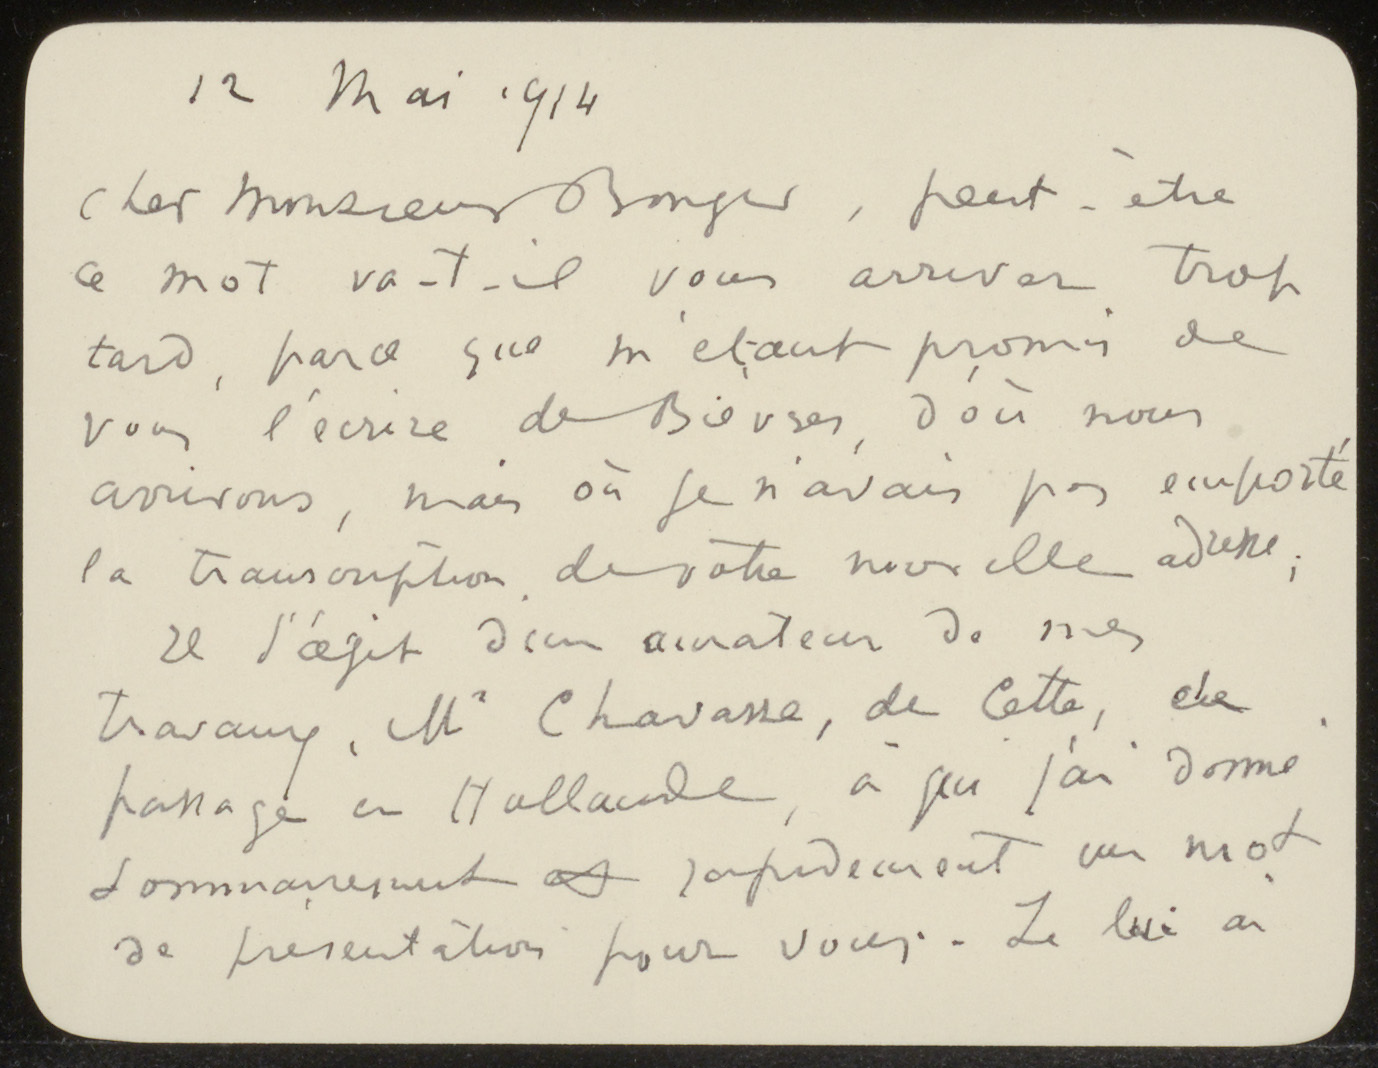 12 Mai 1914
cher Monsieur Bonger, peut-être
ce mot va-t-il vous arriver trop
tard, parce que m'étant promis de
vous l'écrire de Bièvres, d'où nous
arrivons, mais où je n'avais pas emporté
la transcription de votre nouvelle adresse;
Il s'agit d'un amateur de mes
travaux, Mr Chavasse, de Cette, de
passage en Hollande, à qui j'ai donné
sommairement et rapidement un mot
de présentation pour vous. - Je lui ai